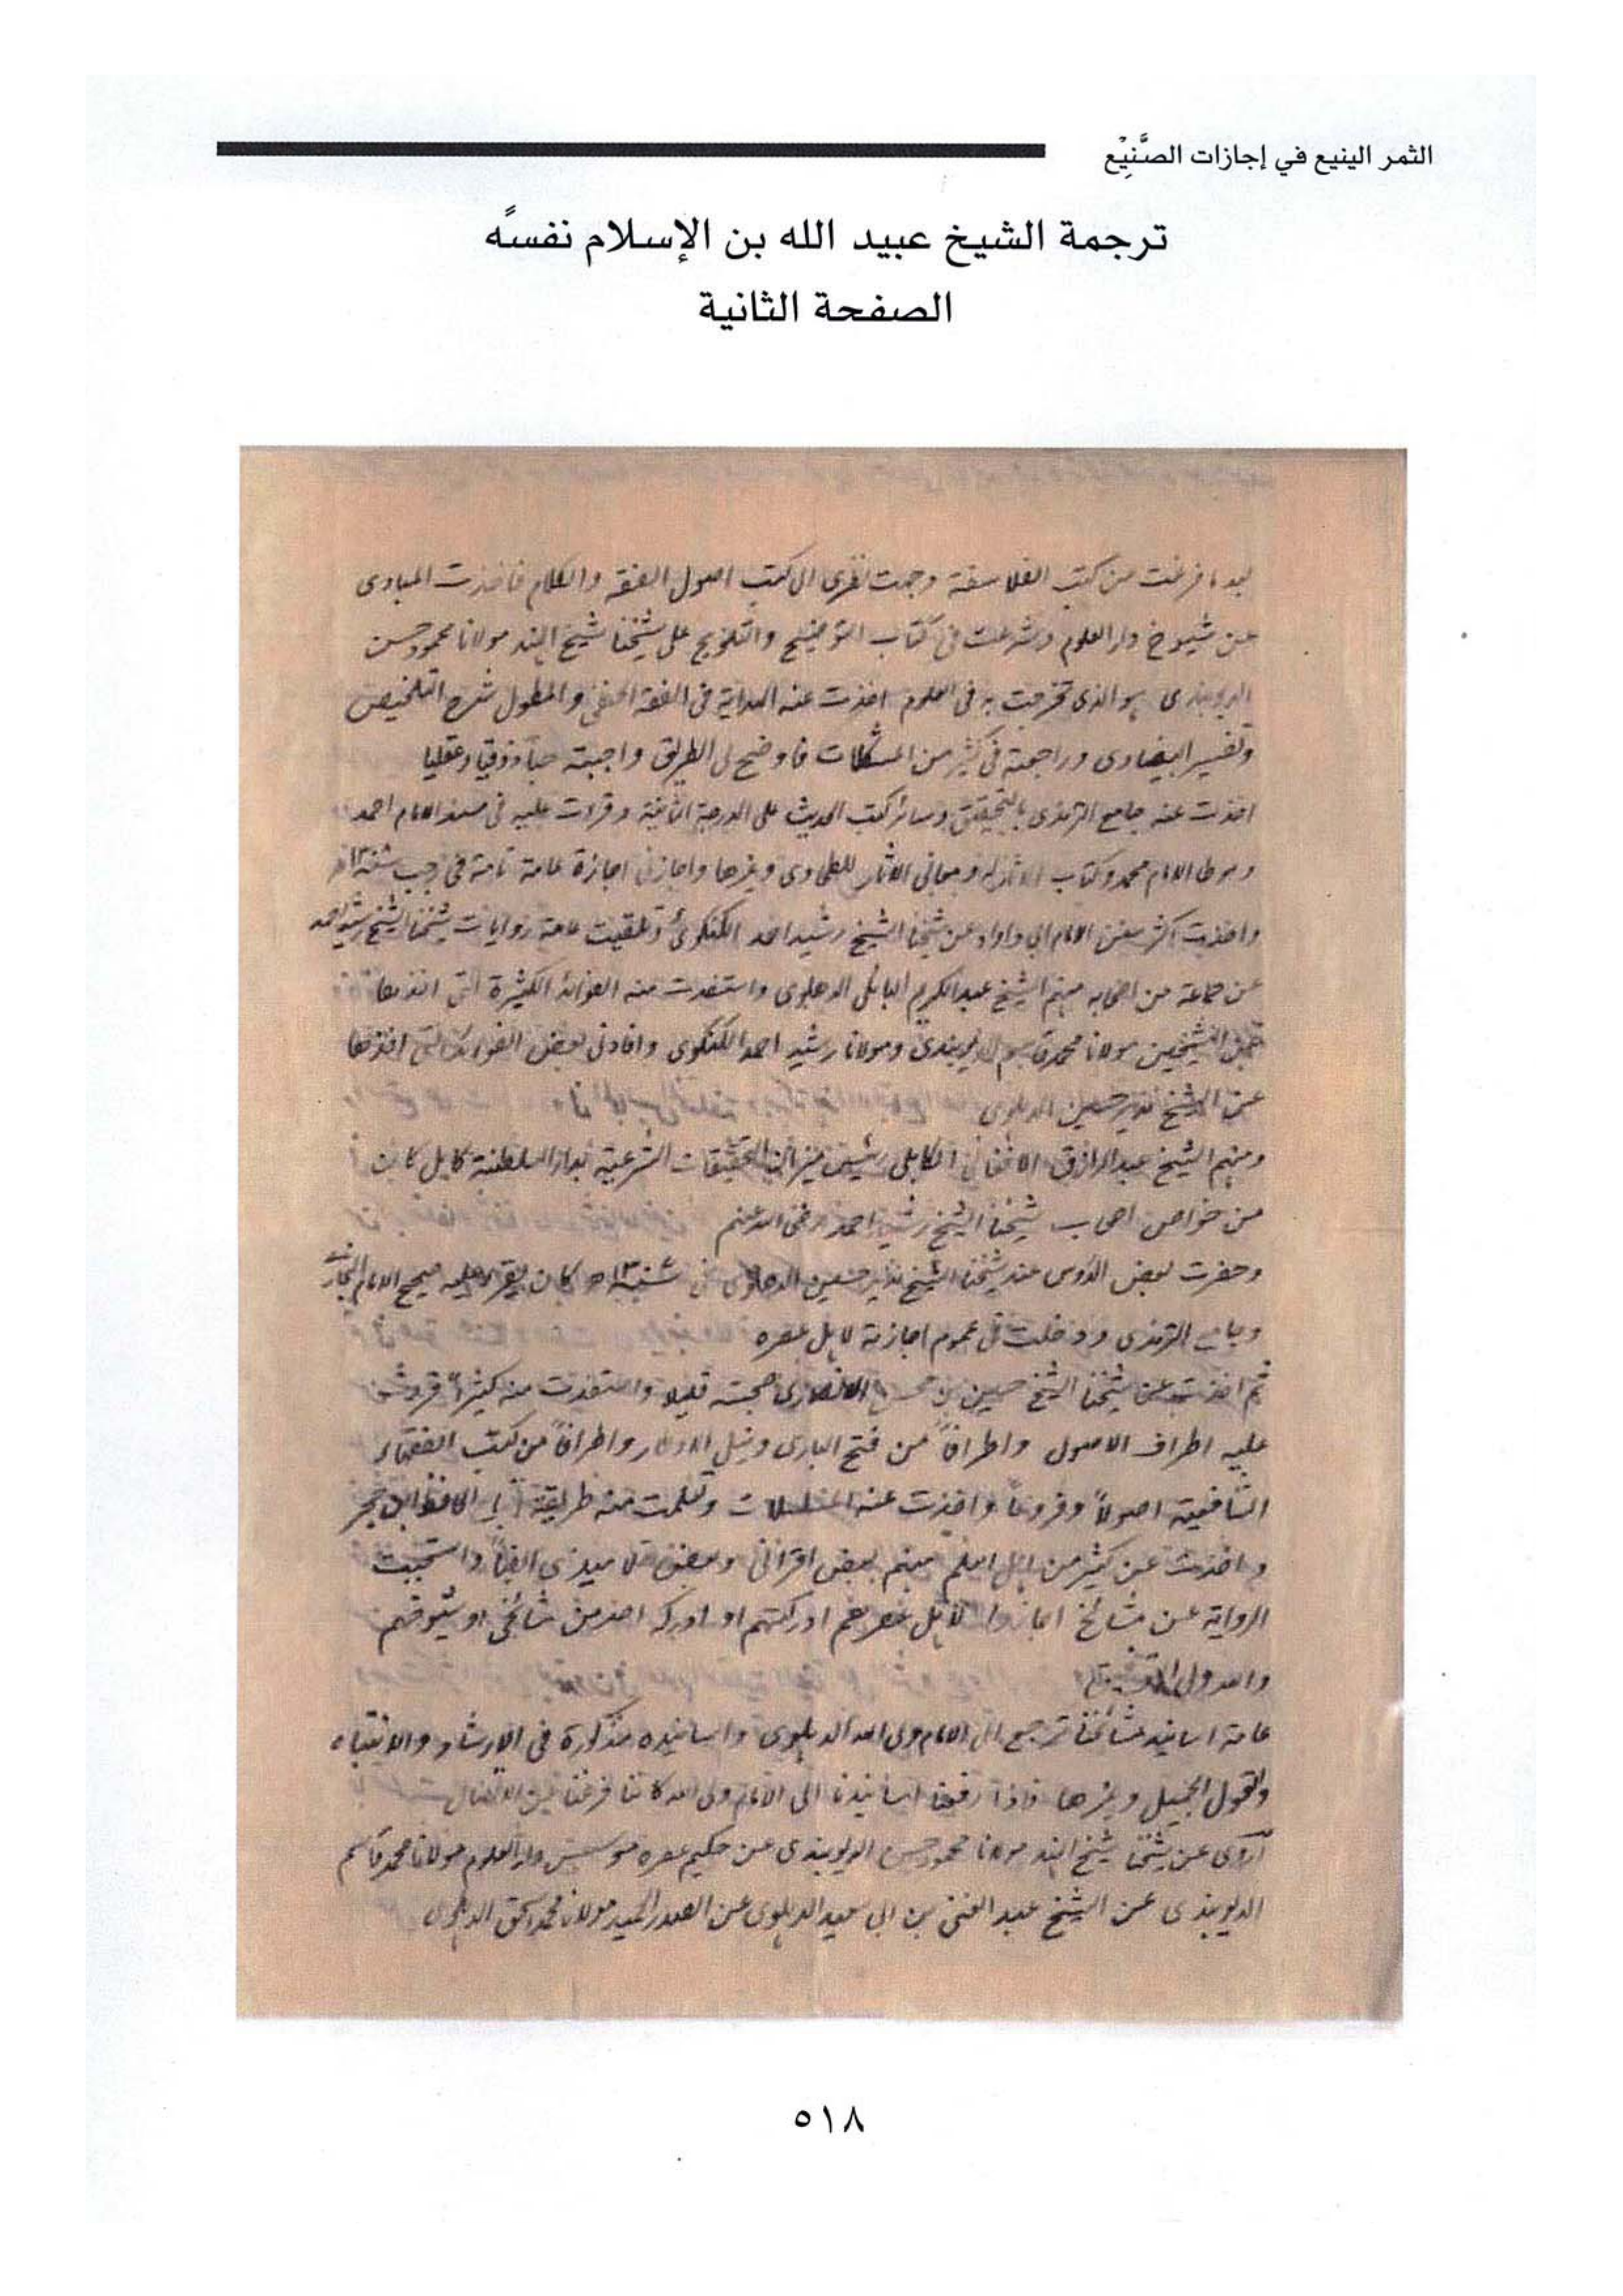 الثمر الينيع في إجازات الصَّنِيْع
ترجمة الشيخ عبيد الله بن الإسلام نفسهً
الصفحة الثانية
بعد ما فرغت من كتب الفلاسفة وجهت نظرى الى كتب اصول الفقه والكلام فاخذت المبادى
عن شيوخ دار العلوم وشرعت فى كتاب التوضيح والتلويح على شيخنا شيخ الهند مولانا محمود حسن
الديوبندى هو الذى تخرجت به فى العلوم اخذت عنه الهداية فى الفقه الحنفى والمطول شرح التلخيص
وتفسير البيضاوى وراجعته فى كثير من المشكلات فاوضح لى الطريق واحببته حبا ذوقيا وعقليا
اخذت عنه جامع الترمذى بالتحقيق وسائر كتب الحديث على الدرجة الثانية وقرات عليه فى مسند الامام احمد
وموطا الامام محمد وكتاب الاثار له ومعانى الاثار للطحاوى وغيرها واجازنى اجازة عامة تامة فى رجب سنة
واخذت اكثر سنن الامام ابى داود عن شيخنا الشيخ رشيد احمد الكنكوى وتلقيت عامة روايات شيخنا الشيخ رشيد احمد
عن جماعة من اصحابه منهم الشيخ عبد الكريم الدهلوى واستفدت منه الفوائد الكثيرة التى اخذها
عن الشيخين مولانا محمد قاسم الديوبندى ومولانا رشيد احمد الكنكوى وافادنى بعض الفوائد التى اخذها
عن الشيخ نذير حسين الدهلوى
ومنهم الشيخ عبد الرازق الافغانى الكابلى رئيس ميزان التحقيقات الشرعية بدار السلطنة كابل كان
من خواص اصحاب شيخنا الشيخ رشيد احمد رضى الله عنهم
وحضرت بعض الدروس عند شيخنا الشيخ نذير حسين الدهلوى فى سنة كان يقرا عليه صحيح الامام البخارى
وجامع الترمذى ودخلت فى عموم اجازته لاهل عصره
ثم اخذت عن شيخنا الشيخ حسين بن محسن الانصارى صحبته قليلا واستفدت منه كثيراً قرات
عليه اطراف الاصول واطرافاً من فتح البارى ونيل الاوطار واطرافاً من كتب الفقهاء
الشافعية اصولاً وفروعاً واخذت عنه المسلسلات وتعلمت منه طريقة الحافظ ابن حجر
واخذت عن كثير من اهل العلم منهم بعض اقرانى وبعض تلاميذى ايضاً واستحببت
الرواية عن مشائخ اجازوا لاهل عصرهم ادركتهم او ادركه احد من مشائخى او شيوخهم
والله ولى التوفيق
عامة اسانيد مشائخنا ترجع الى الامام ولى الله الدهلوى واسانيده مذكورة فى الارشاد والانتباه
والقول الجميل وغيرها فاذا رفعنا اسانيدنا الى الامام ولى الله كاننا فرغنا من الاتصال
اروى عن شيخنا شيخ الهند مولانا محمود حسن الديوبندى عن حكيم عصره مؤسس دار العلوم مولانا محمد قاسم
الديوبندى عن الشيخ عبد الغنى بن ابى سعيد الدهلوى عن الصدر الحميد مولانا محمد اسحق الدهلوى
٥١٨